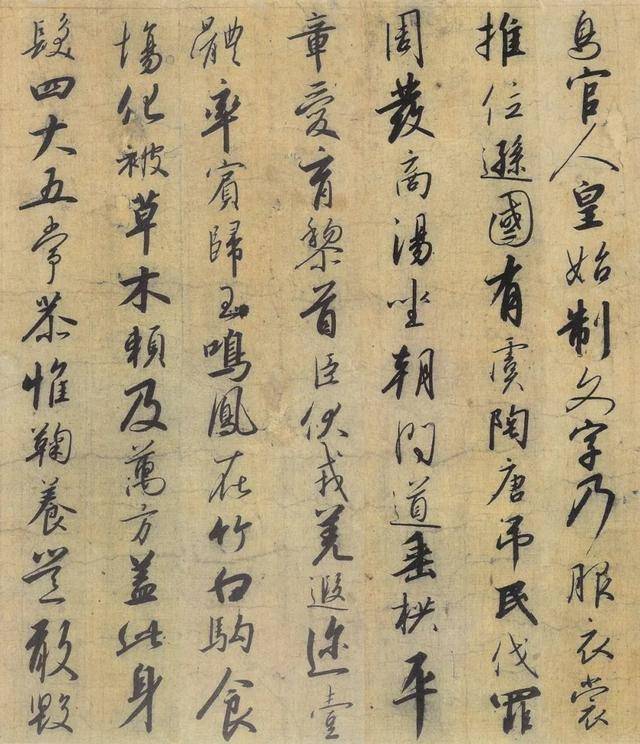 鳥官人皇始制文字乃服衣裳
推位遜國有虞陶唐吊民伐罪
周發商湯坐朝問道垂拱平
章愛育黎首臣伏戎羌遐邇壹
體率賓歸王鳴鳳在竹白駒食
場化被草木賴及萬方蓋此身
髮四大五常恭惟鞠養豈敢毀